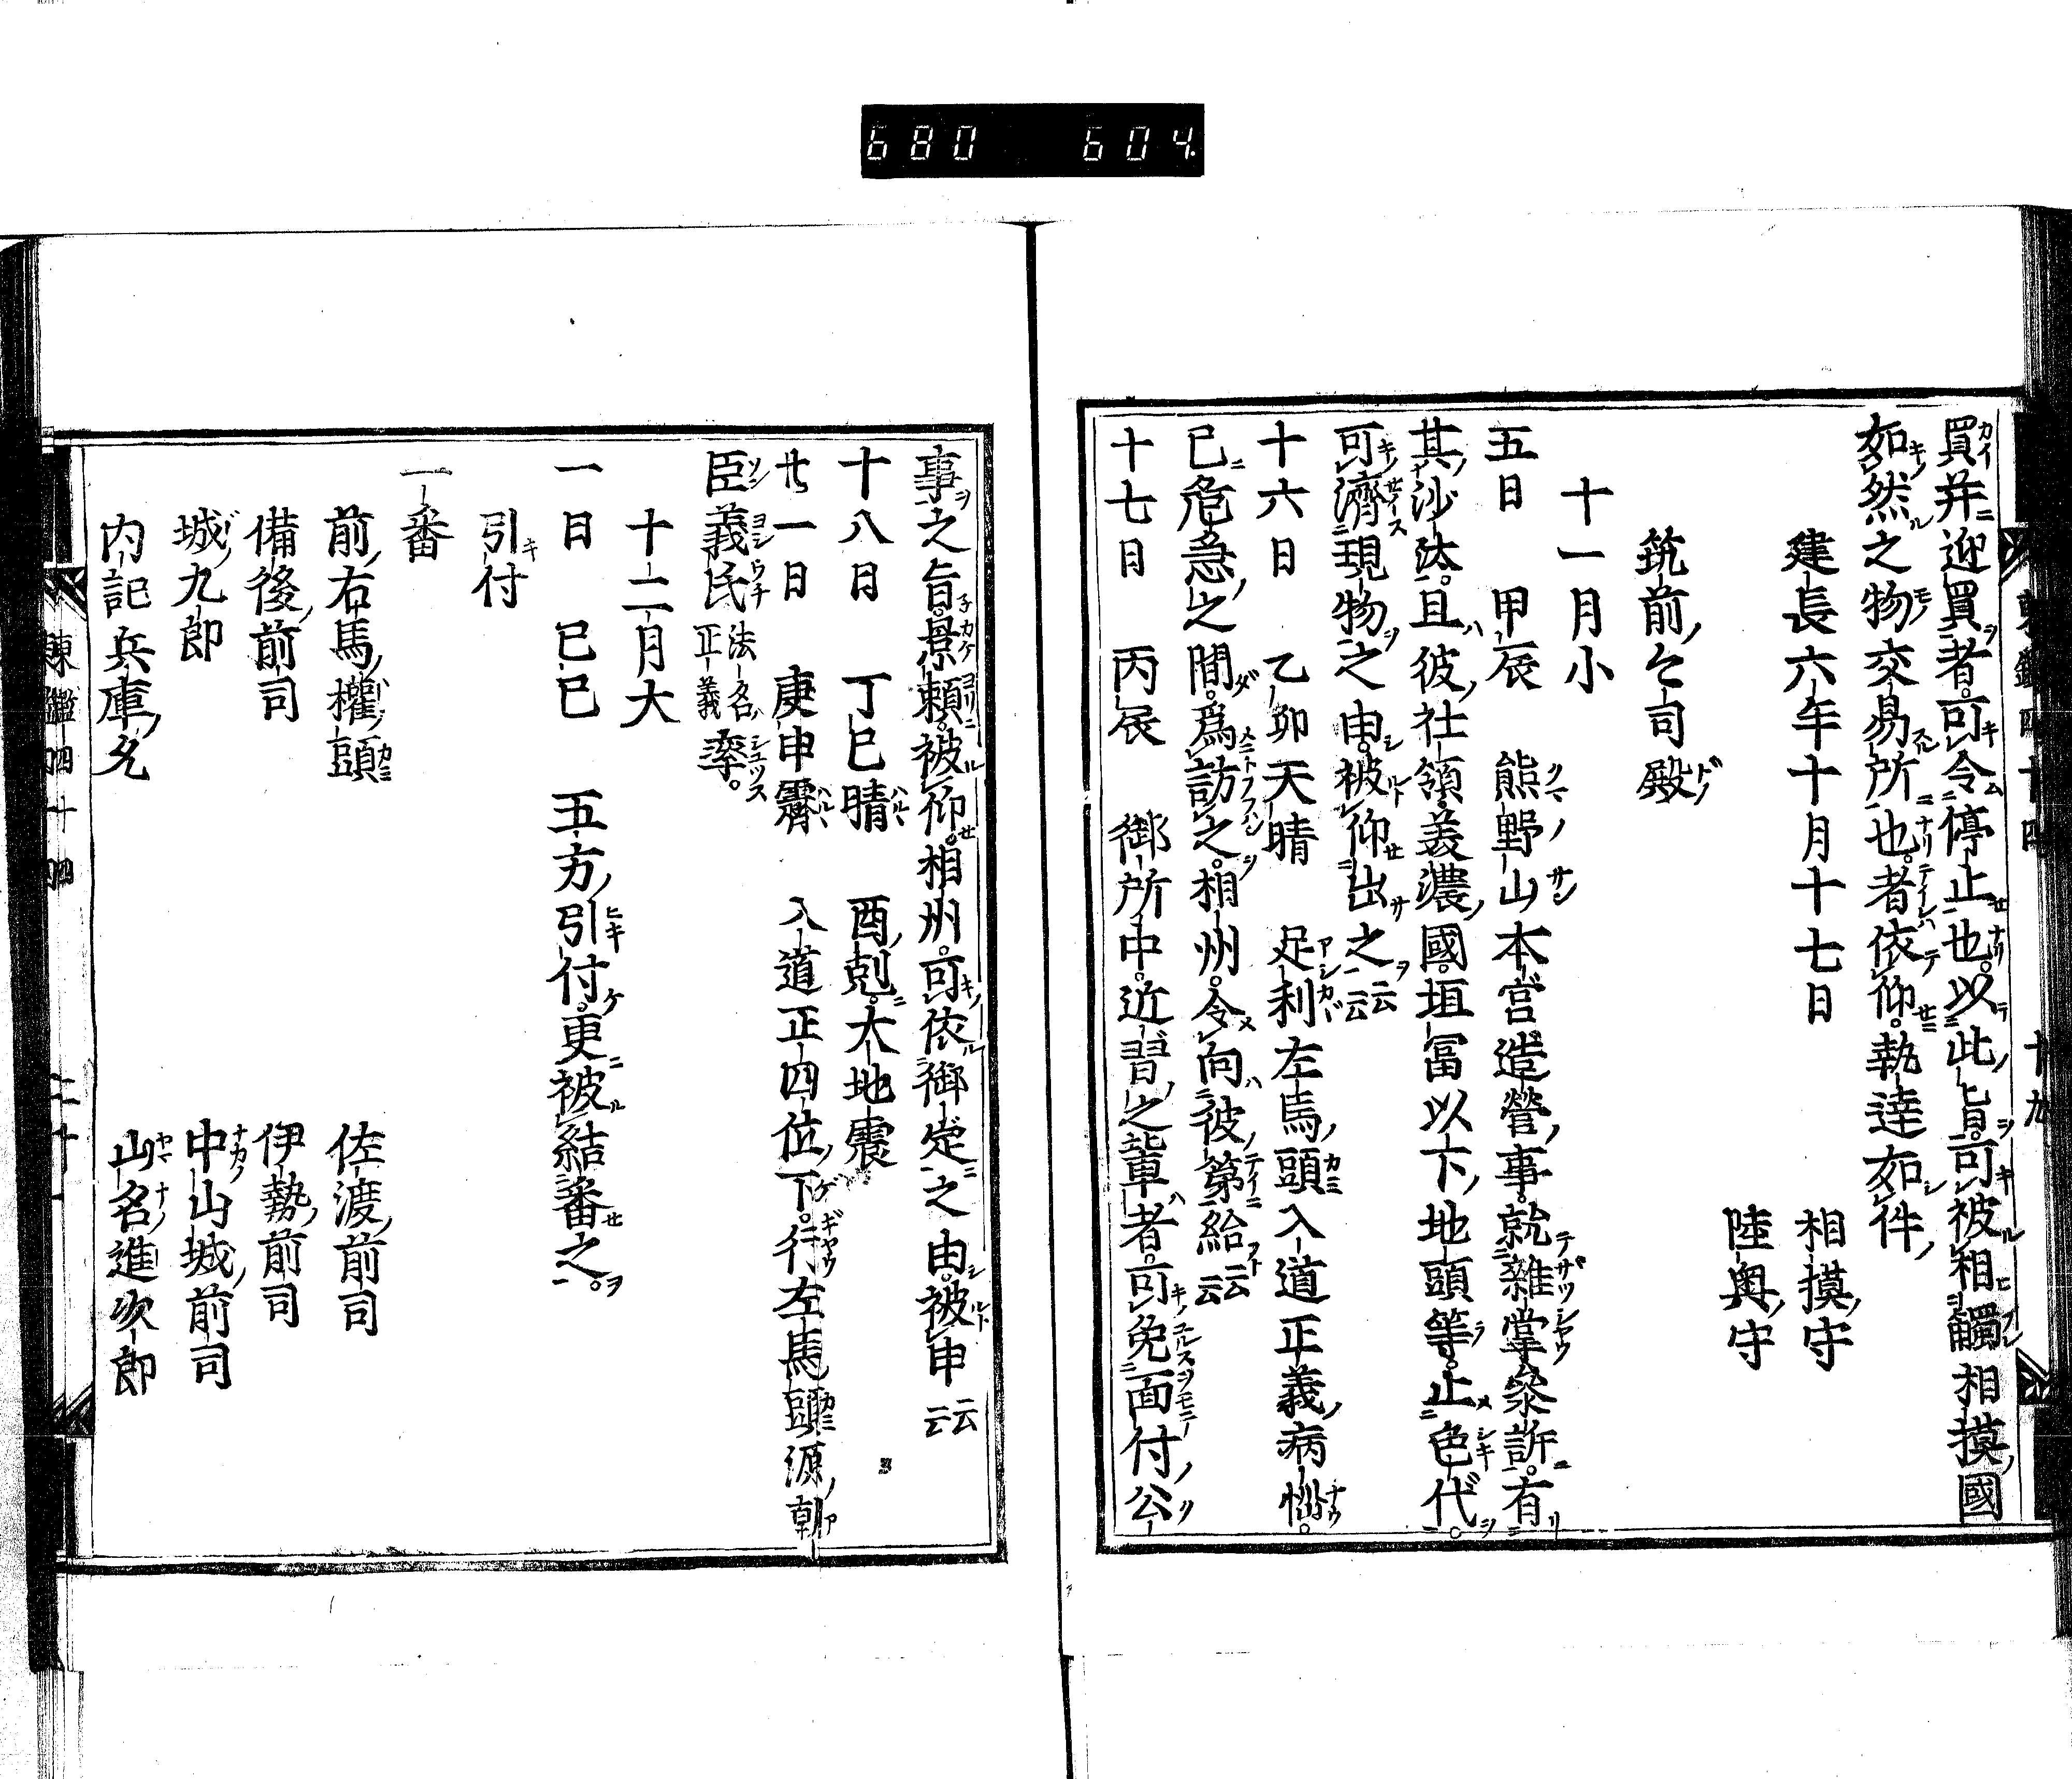 680 604.
買并迎買者。可令停止也。以此旨。可被相觸相摸國
如然之物交易所也。者依仰。執達如件
建長六年十月十七日
相摸守
陸奥守
筑前々司殿
十一月小
五日 甲辰 熊野山本宮造營事。就雜掌參訴。有
其沙汰。且彼社領。美濃國。垣冨以下地頭等。止色代。
可濟現物之由。被仰出之云云
十六日 乙卯天晴 足利左馬頭入道正義病惱。
已危急之間。爲訪之。相州。令向彼第給云云
十七日 丙辰 御所中。近習之輩者。可免面付公
事之旨。景頼。被仰。相州。可依御定之由。被申云云
十八日 丁巳晴 酉剋。大地震
廿一日 庚申霽 入道正四位下。行左馬頭源朝
臣義氏法名正義率。
十二月大
一日 己巳 五方引付。更被結番之。
引付
一番
前右馬權頭 佐渡前司
備後前司 伊勢前司
城九郎 中山城前司
内記兵庫允 山名進次郎
東鑑四十四 二十